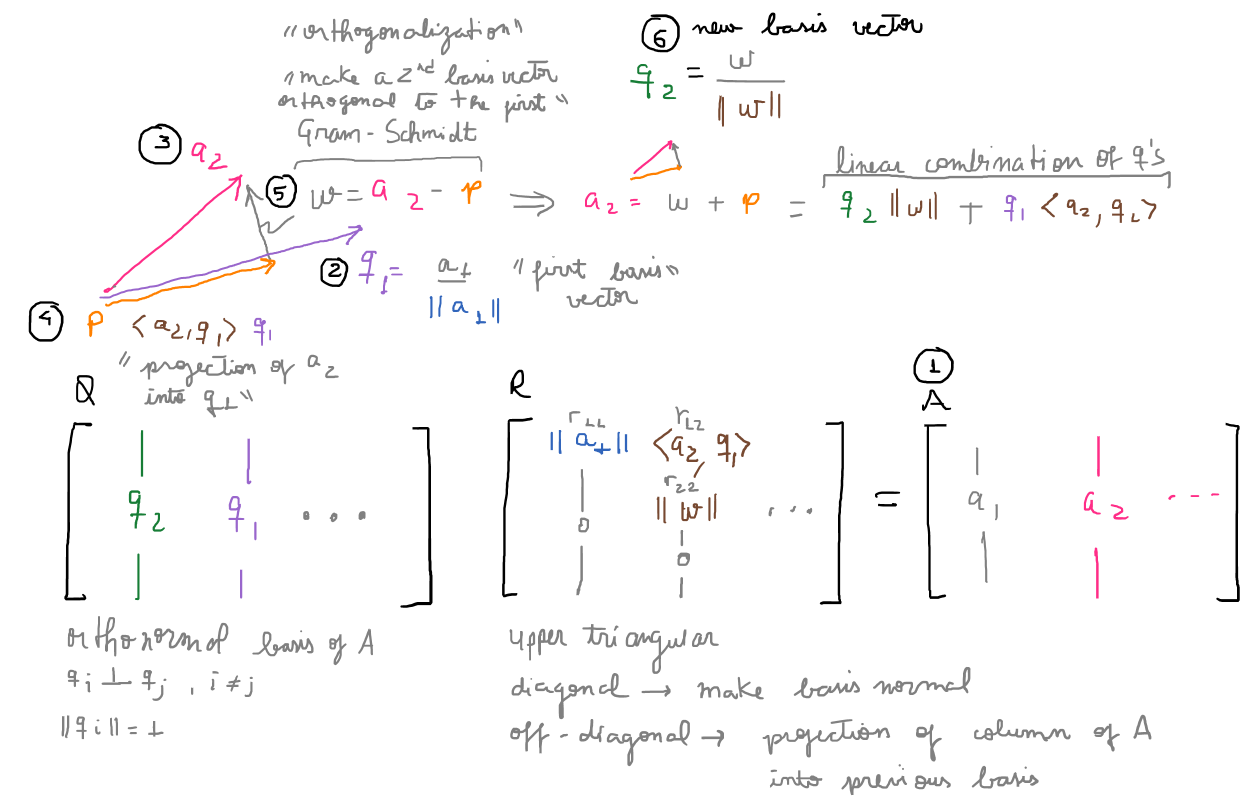 "orthogonalization"
"make a 2nd basis vector
orthogonal to the first"
Gram-Schmidt
⑥ new basis vector
q₂ = w / ||w||
③ a₂
⑤ w = a₂ - p ⟹ a₂ = w + p = q₂ ||w|| + q₁ <q₂, q₂>
linear combination of q's
② q₁ = a₁ / ||a₁|| "first basis
vector"
④ p <a₂, q₁> q₁
"projection of a₂
into q₁"
Q
R
① A
q₂ q₁ ...
r₁₁ r₁₂
||a₁|| <a₂, q₁>
r₂₂
0 ||w|| ...
0
=
a₁ a₂ ...
orthonormal basis of A
qᵢ ⊥ qⱼ , i ≠ j
||qᵢ|| = 1
upper triangular
diagonal → make basis normal
off-diagonal → projection of column of A
into previous basis